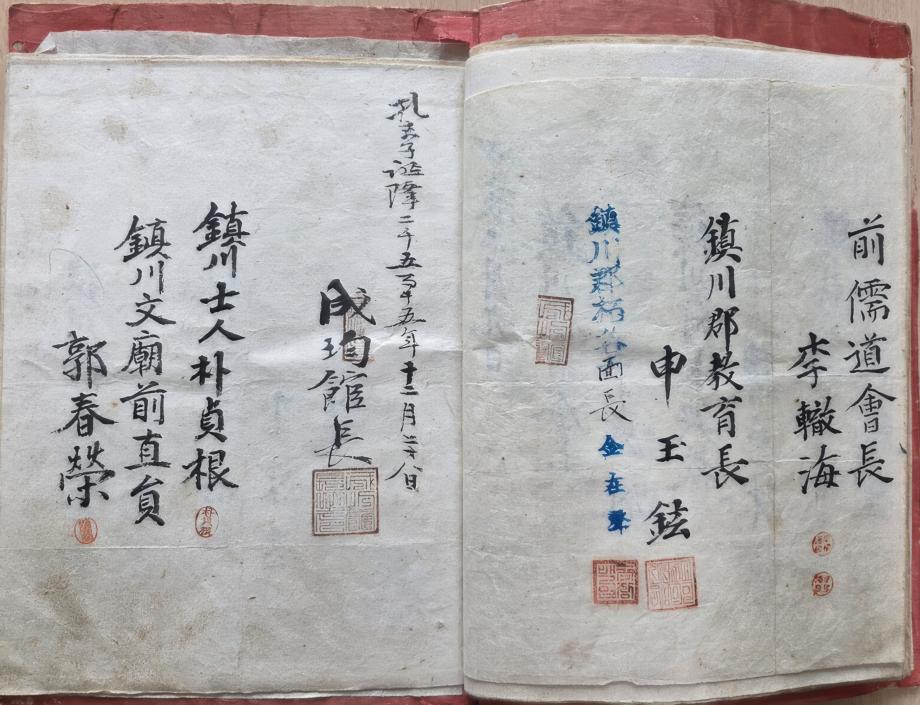 前儒道會長
李轍海
鎮川郡教育長
申玉
鎮川郡栢谷面長
金在
孔夫子誕降二千五百十五年十二月二十八日
成均館長
鎮川士人朴貞根
鎮川文廟前直員
郭春榮